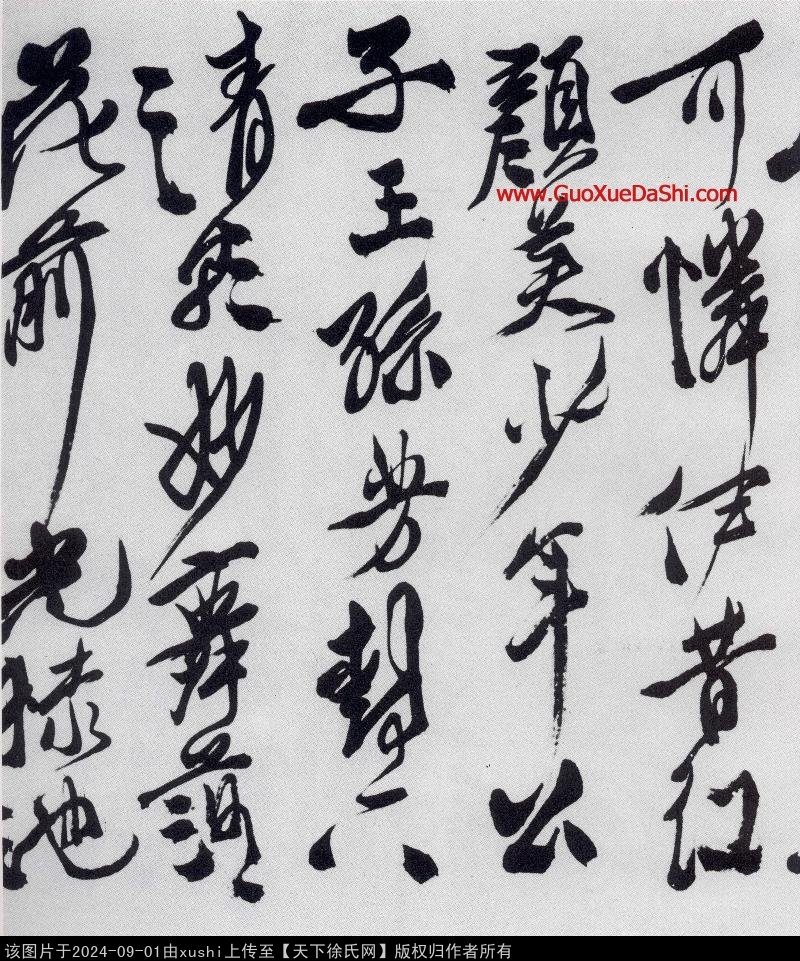 可憐伊昔紅
顏美少年公
子王孫芳樹下
清歌妙舞落
花前光祿池
www.GuoXueDaShi.com
该图片于2024-09-01由xushi上传至【天下徐氏网】版权归作者所有